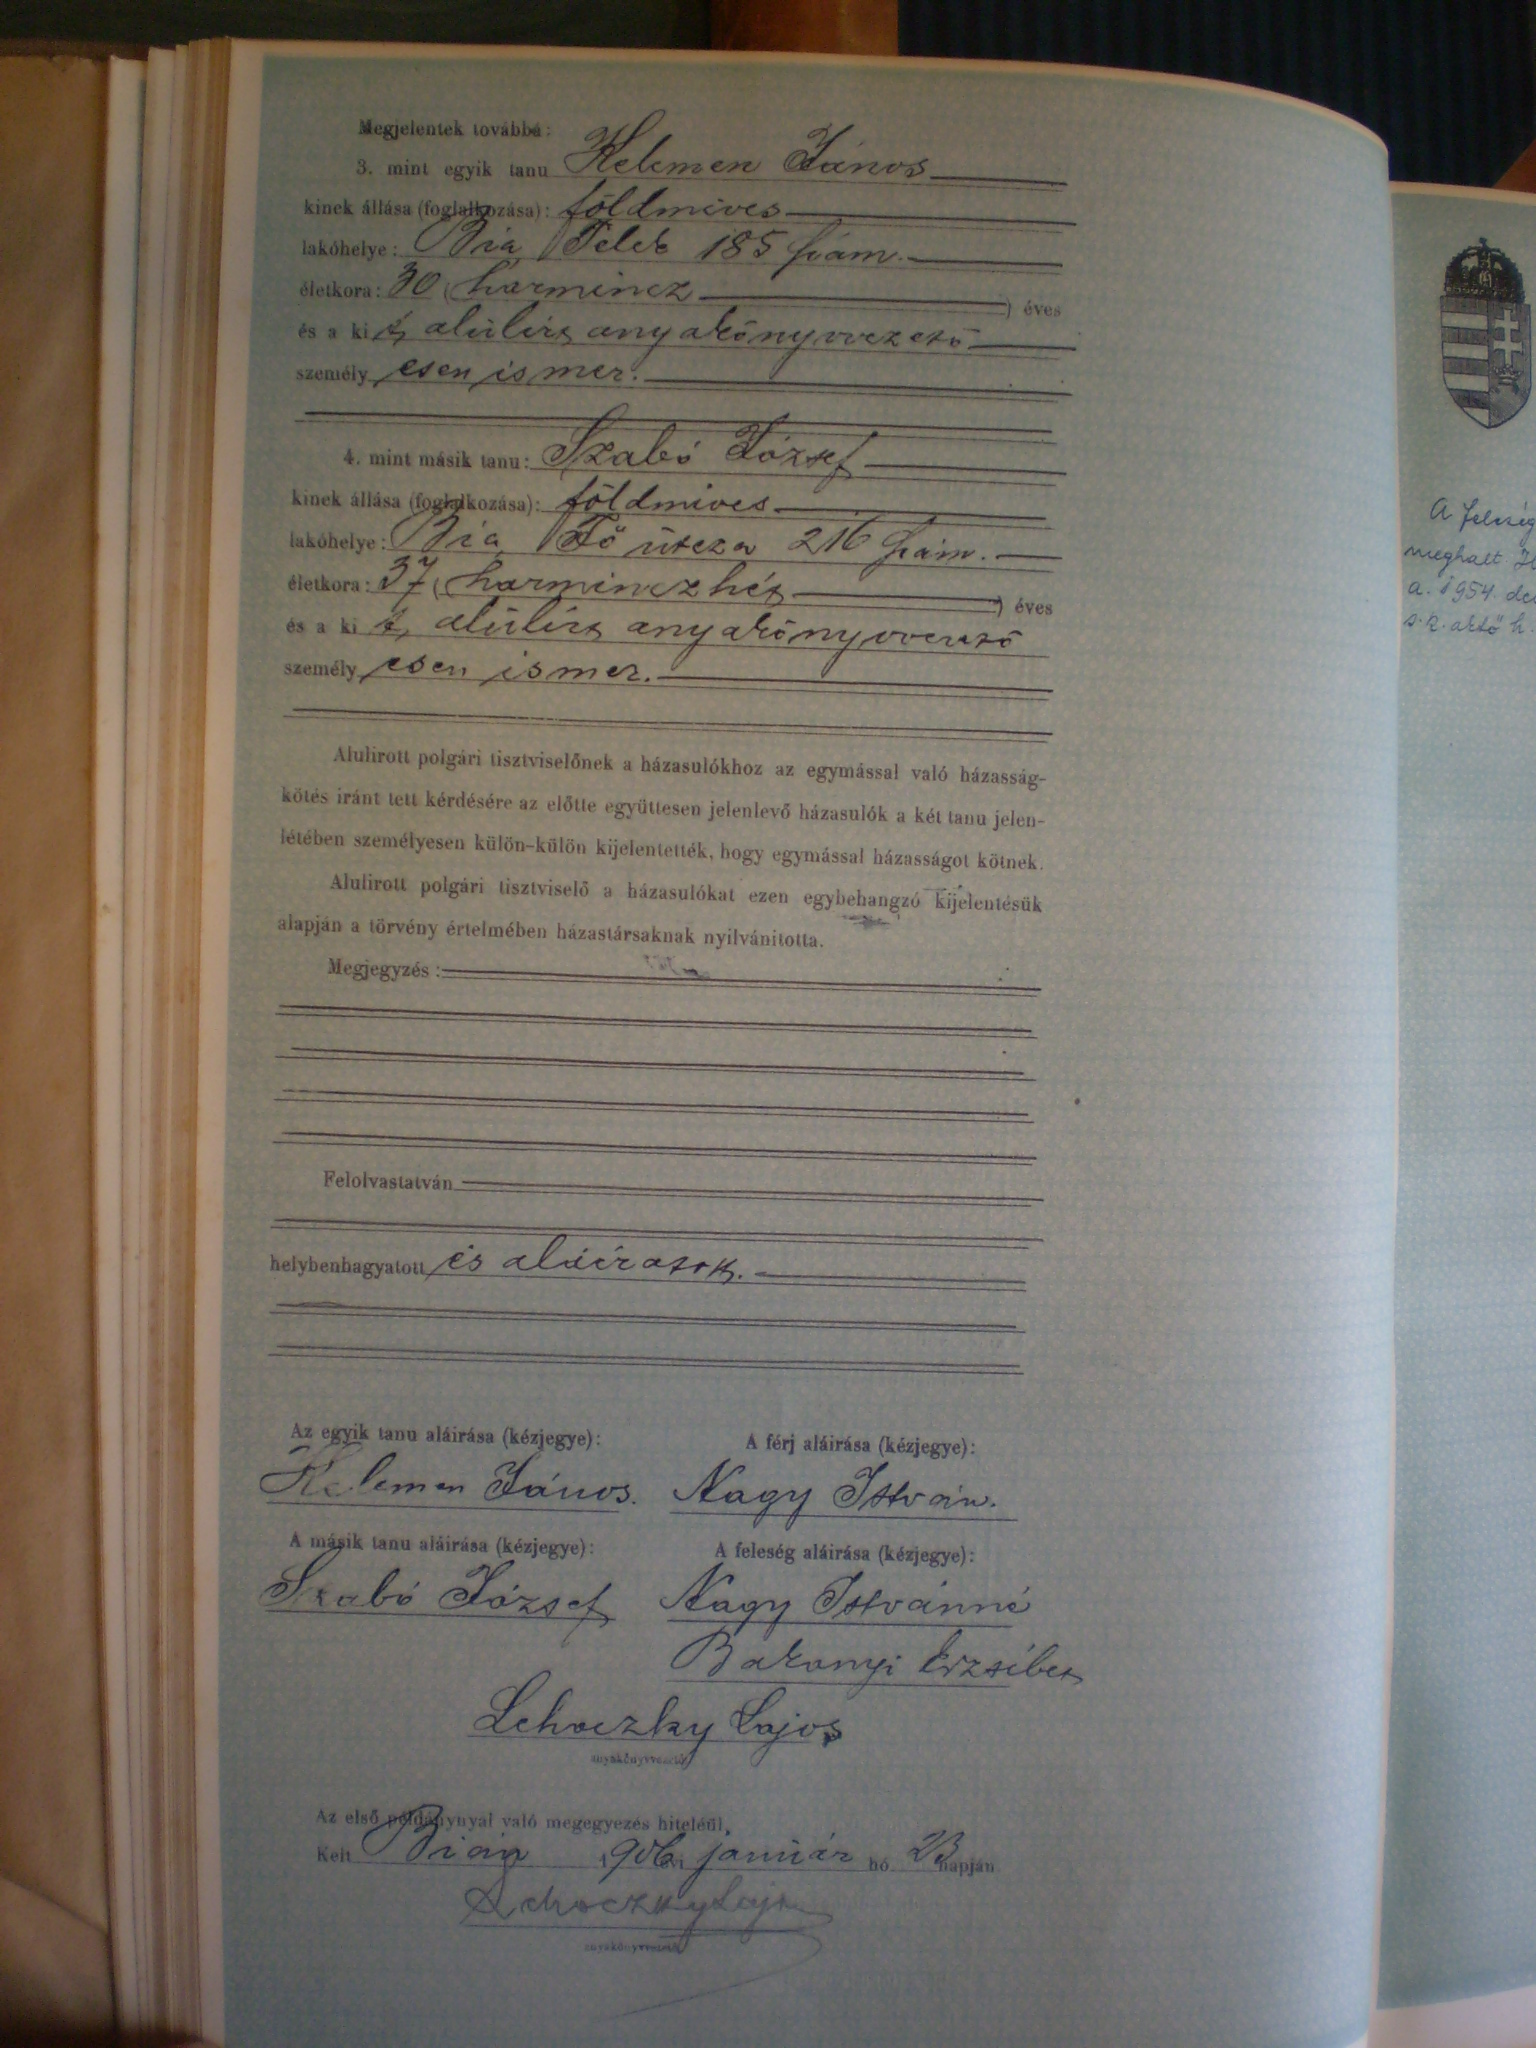 Megjelentek továbbá:
3. mint egyik tanu Kelemen János
kinek állása (foglalkozása): földmives
lakóhelye: Bia, Telek 185 szám.
életkora: 30 (harmincz) éves
és a ki t, alúlirt anyakönyvvezető
személyesen ismer.
4. mint másik tanu: Szabó József
kinek állása (foglalkozása): földmives
lakóhelye: Bia, Fő útcza 216 szám.
életkora: 37 (harminczhét) éves
és a ki t, alúlirt anyakönyvvezető
személyesen ismer.
Alulirott polgári tisztviselőnek a házasulókhoz az egymással való házasság-
kötés iránt tett kérdésére az előtte együttesen jelenlevő házasulók a két tanu jelen-
létében személyesen külön-külön kijelentették, hogy egymással házasságot kötnek.
Alulirott polgári tisztviselő a házasulókat ezen egybehangzó kijelentésük
alapján a törvény értelmében házastársaknak nyilvánitotta.
Megjegyzés:
Felolvastatván
helybenhagyatott és aláiratott.
Az egyik tanu aláirása (kézjegye): A férj aláirása (kézjegye):
Kelemen János. Nagy István.
A másik tanu aláirása (kézjegye): A feleség aláirása (kézjegye):
Szabó József Nagy Istvánné
Bakonyi Erzsébet
Lehoczky Lajos
anyakönyvvezető
Az első példánynyal való megegyezés hiteléül,
Kelt Bián 1906 évi január hó 23 napján
Lehoczky Lajos
anyakönyvvezető
A feleség
meghalt
a. 1954. dec
s.k. aktő h.